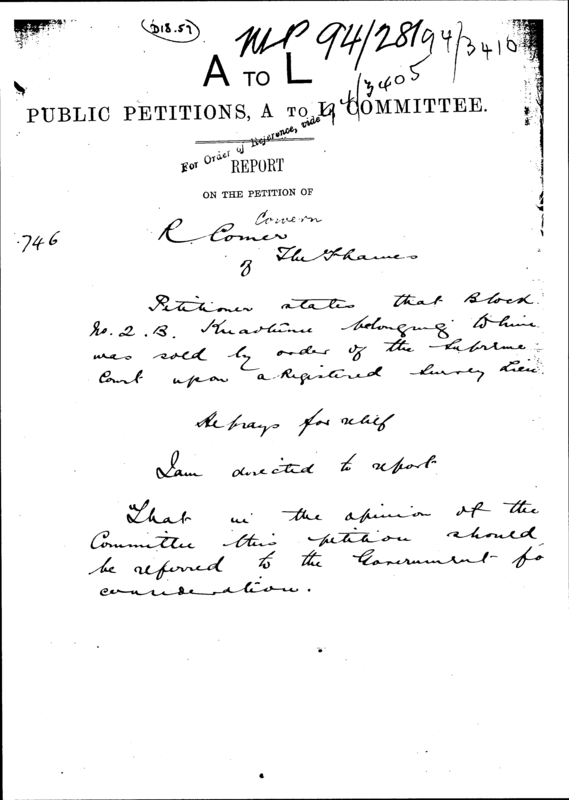 D18.57
MP 94/2819
94/3410
94/3405
A TO L
PUBLIC PETITIONS, A TO L COMMITTEE.
For Order of Reference, vide
REPORT
ON THE PETITION OF
Cowern
746
R Comer
of The Thames
Petitioner states that Block
No. 2. B. belonging to him
was sold by order of the Supreme
Court upon a Registered Survey Lien
He prays for relief
I am directed to report
That in the opinion of the
Committee this petition should
be referred to the Government fo
consideration.